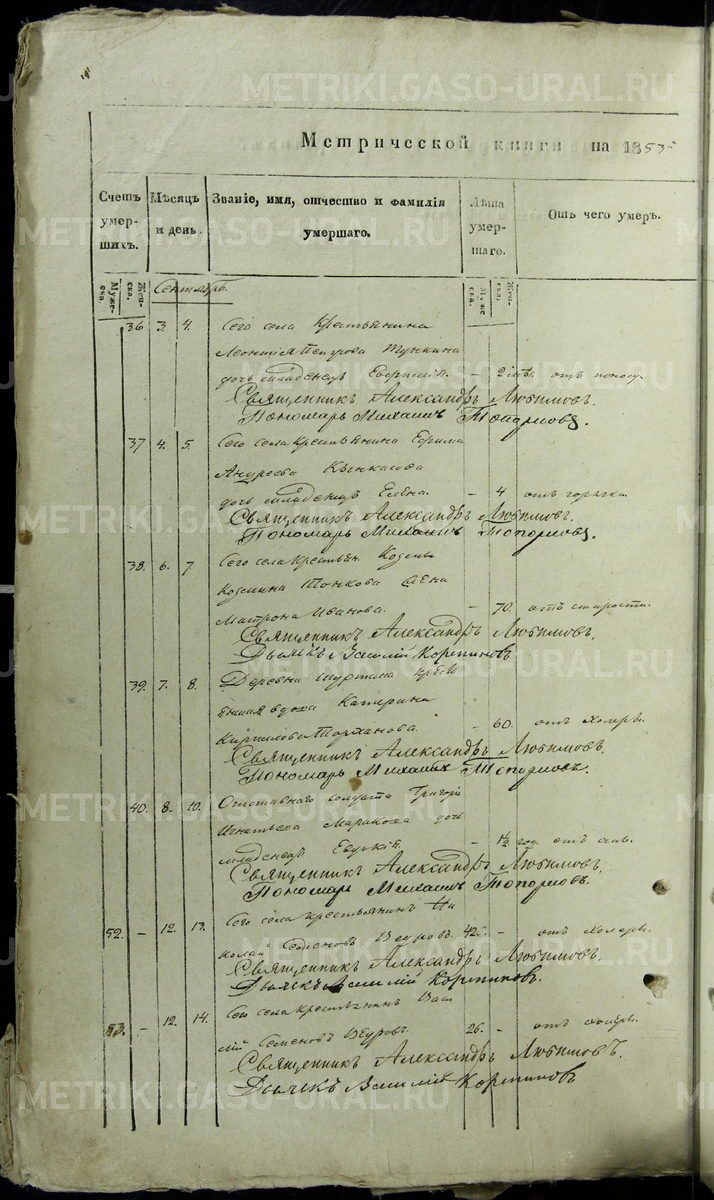 METRIKI.GASO-URAL.RU
Метрической книги на 1853
Счетъ умер-шихъ.
Мѣсяцъ и день.
Званіе, имя, отчество и фамилія умершаго.
Лѣта умер-шаго.
Отъ чего умеръ.
Муже-ска.
Жен-ска.
Муже-ска.
Жен-ска.
Сентябрь.
36 3. 4. Сего села Крестьянина
Леонтія Петрова
дочь младенецъ – 2 отъ поносу.
Священникъ Александръ Любимовъ.
Пономарь Михаилъ Топорковъ.
37 4. 5. Сего села Крестьянина Ефима
Андреева
дочь младенецъ Елена. – 4 отъ горячки
Священникъ Александръ Любимовъ.
Пономарь Михаилъ Топорковъ.
38. 6. 7. Сего села крестьян. Козмы
Козмина Тонкова жена
Матрона Иванова. – 70. отъ старости.
Священникъ Александръ Любимовъ.
Дьячекъ Василій
39. 7. 8. Деревни
вдова Катерина
Кирилова – 60. отъ холеры.
Священникъ Александръ Любимовъ.
Пономарь Михаилъ Топорковъ.
40. 8. 10. Отставнаго солдата Григорія
Игнатьева дочь
младенецъ – 1½ год. отъ
Священникъ Александръ Любимовъ,
Пономарь Михаилъ Топорковъ.
52. – 12. 13. Сего села крестьянинъ Ни
колай 42. – отъ холеры.
Священникъ Александръ Любимовъ.
Дьячекъ Василій
53. – 12. 14. Сего села крестьянинъ Васи
лій Семеновъ 26. – отъ холеры.
Священникъ Александръ Любимовъ.
Дьячекъ Василій